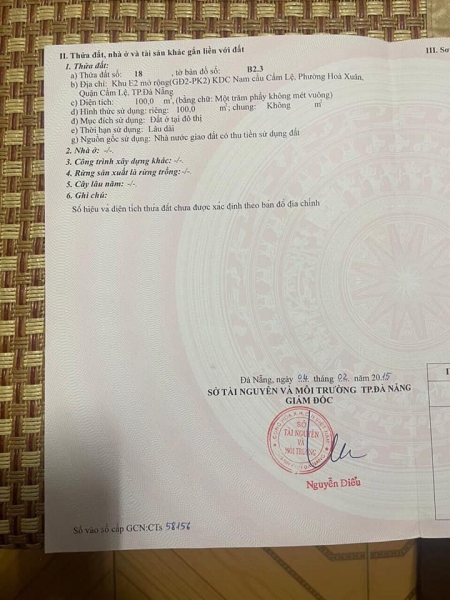 II. Thửa đất, nhà ở và tài sản khác gắn liền với đất
III. Sơ
1. Thửa đất:
a) Thửa đất số: 18 , tờ bản đồ số: B2.3
b) Địa chỉ: Khu E2 mở rộng(GĐ2-PK2) KDC Nam cầu Cẩm Lệ, Phường Hoà Xuân,
Quận Cẩm Lệ, TP.Đà Nẵng
c) Diện tích: 100,0 m², (bằng chữ: Một trăm phẩy không mét vuông)
d) Hình thức sử dụng: riêng: 100,0 m²; chung: Không m²
đ) Mục đích sử dụng: Đất ở tại đô thị
e) Thời hạn sử dụng: Lâu dài
g) Nguồn gốc sử dụng: Nhà nước giao đất có thu tiền sử dụng đất
2. Nhà ở: -/-.
3. Công trình xây dựng khác: -/-.
4. Rừng sản xuất là rừng trồng: -/-.
5. Cây lâu năm: -/-.
6. Ghi chú:
Số hiệu và diện tích thửa đất chưa được xác định theo bản đồ địa chính
Đà Nẵng, ngày 04 tháng 02 năm 2015
SỞ TÀI NGUYÊN VÀ MÔI TRƯỜNG TP.ĐÀ NẴNG
GIÁM ĐỐC
SỞ
TÀI NGUYÊN
VÀ
MÔI TRƯỜNG
Nguyễn Điểu
Số vào sổ cấp GCN:CTs 58156